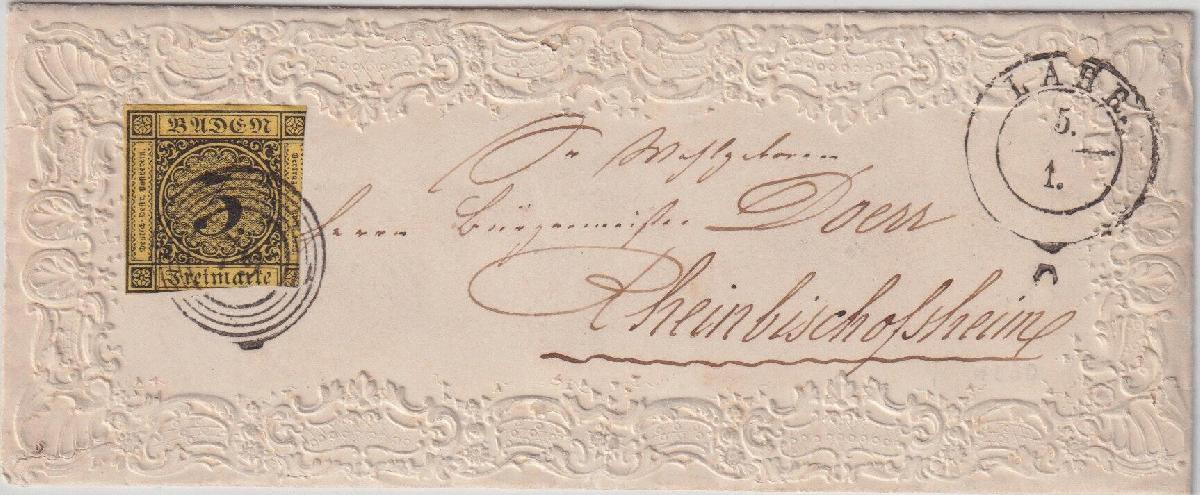 BADEN
3.
Freimarke
LAHR.
5.
1.
Sr Wohlgeboren
Herrn Bürgermeister Doerr
Rheinbischofsheim